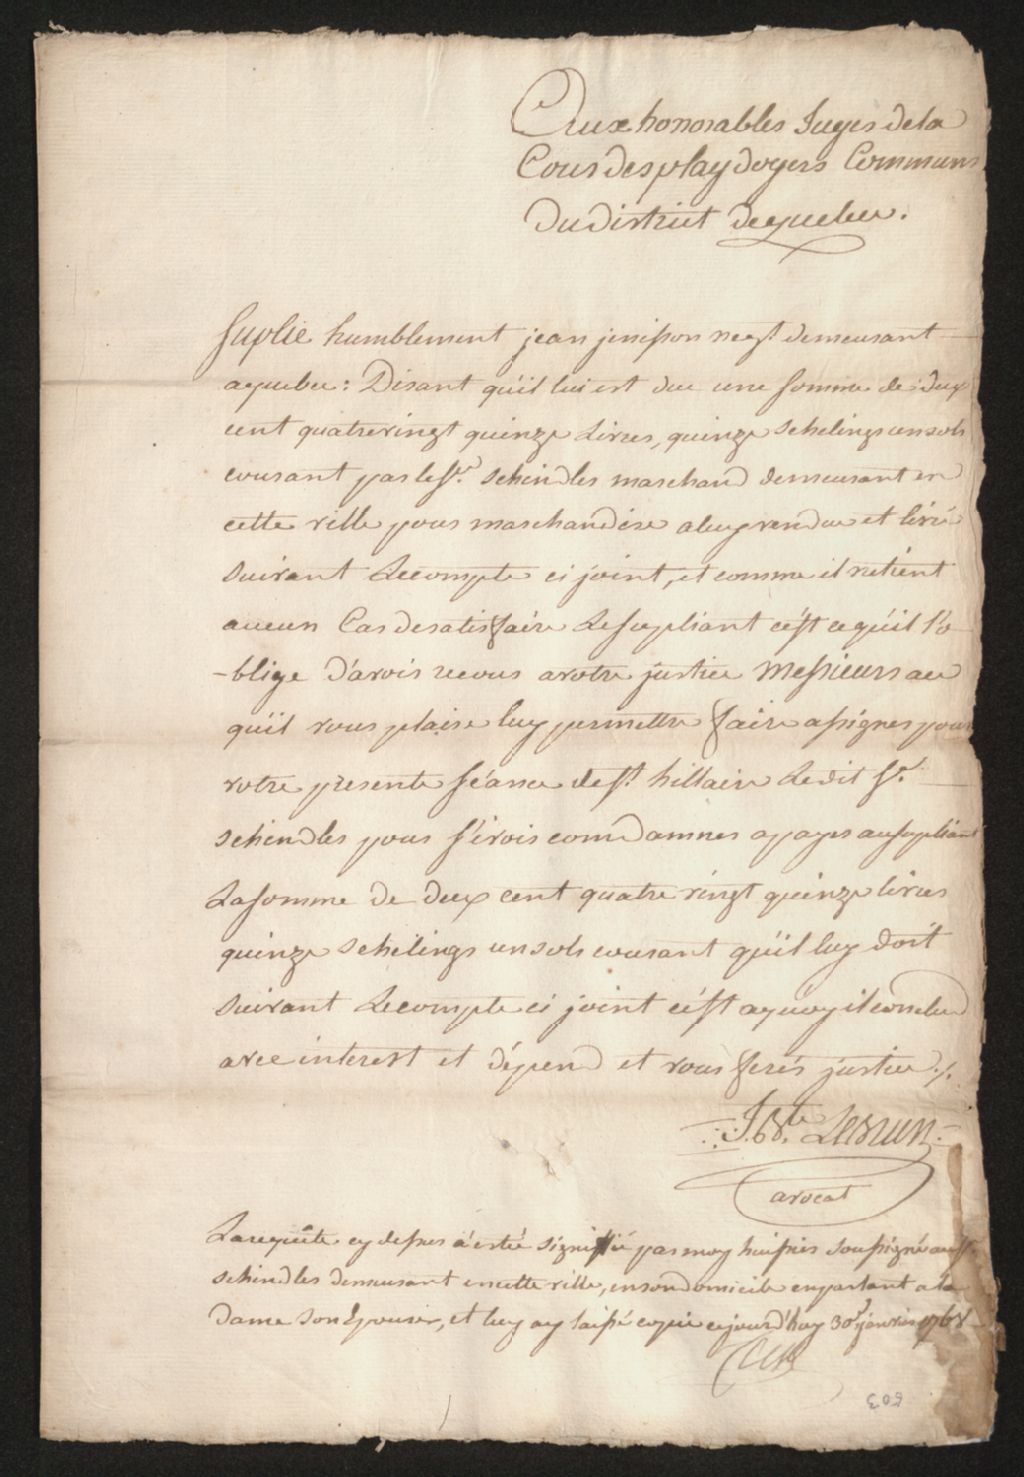 Aux honorables Juges dela
Cour des playdoyers Communs
Du district dequebec.
Suplie humblement jean jenisson negt demeurant
aquebec: Disant qu'il lui est due une somme de deux
cent quatrevingt quinze Livres, quinze schelings un sols
courant par le Sr. schindler marchand demeurant en
cette ville pour marchandise a luy vendue et livré
suivant Lecompte ci joint, et comme il netient
aucun Cas desatisfaire Lesupliant c'est cequ'il l'o
-blige D'avoir recour avotre justice Messieurs ace
qu'il vous plaise luy permettre faire assigner pour
votre presente séance de St. hillaire Ledit Sr.
schindler pour s'evoir comdamner apayer ausupliant
Lasomme de deux cent quatre vingt quinze livres
quinze schelings un sols courant qu'il luy doit
suivant Lecompte ci joint c'est aquoy il conclud
avec interest et dépend et vous ferés justice ./.
J. Bte. LeBrun
avocat
La requête cy dessus a estée signifié par moy huissier soussigné au Sr.
schindler demeurant en cette ville, en son domicile en parlant a la
Dame son Epouse, et luy ay laissé copie cejourd'huy 30e janvier
603